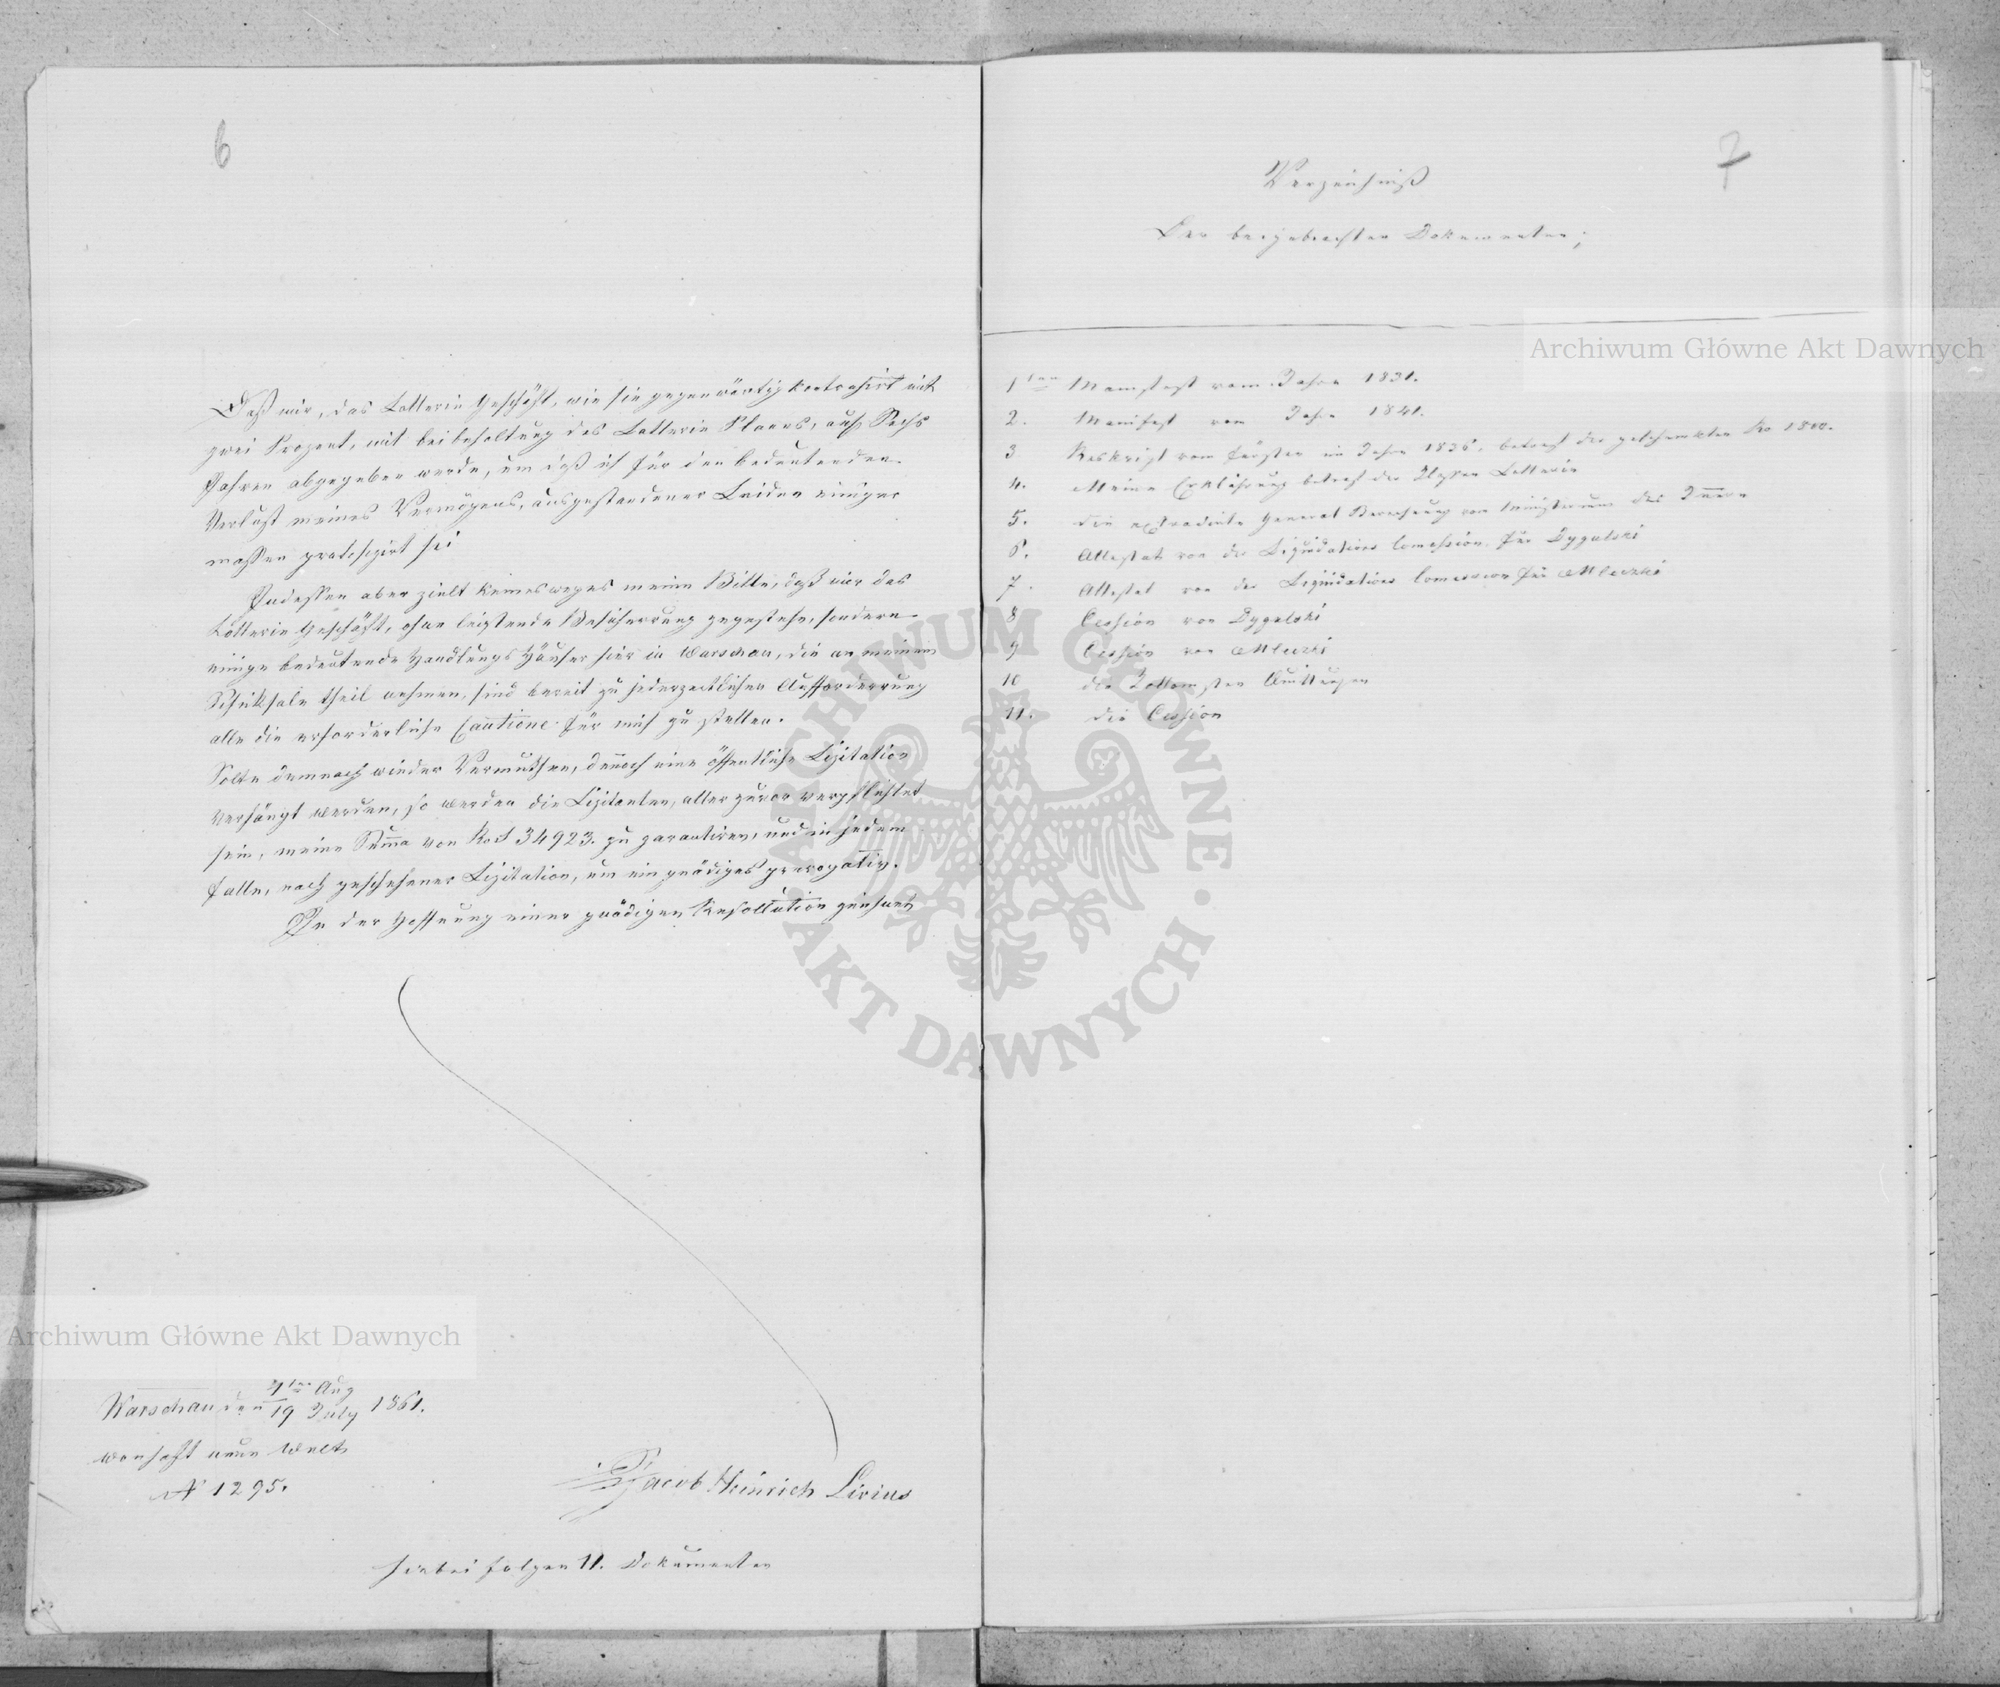 6
Daß mir, das Lotterie Geschäft, wie sie gegenwärtig kontrahirt mit
zwei Prozent, mit beibehaltung des Lotterie Planes, auf Sechs
Jahren abgegeben werde, um daß ich für den bedeutenden
Verlust meines Vermögens, ausgestandener Leiden einiger
massen protesirt sei
Indessen aber zielt keinesweges meine Bitte, daß mir das
Lotterie Geschäft, ohne leistende Besicherrung zugestehe, sondern
einige bedeutende Handlungs Häuser hier in Warschau, die an meinem
Schiksale theil nehmen, sind bereit zu jederzeitlicher Aufforderrung
alle die erforderliche Cautione für mich zu stellen.
Solte demnach wieder Vermuthen, dennoch eine öffentliche Lizitation
verhängt werden, so werden die Lizitanten, aller zuvor verpflichtet
sein, meine Suma von Ro S 34923. zu garantiren, und in jedem
falle, nach geschehener Lizitation, um ein gnädiges prerogativ.
In der Hoffnung einer gnädigen Resollution
Warschau den 4ten Aug / 19 July 1861.
wonhaft neue Welt
N 1295.
Jacob Heinrich Livius
hierbei folgen 11. Dokumenten
7
Verzeichniß
Der beigebrachten Dokumenten;
1ten Manifest vom Jahre 1831.
2. Manifest vom Jahre 1841.
3 Reskript vom Fürsten im Jahre 1836. betreff der geschenkten Ro 1800.
4. Meine Erklährung betreff der Lotterie
5. die General vom Ministerium des Innern
6. Attestat von der Liquidations Comession für Dygulski
7. Attestat von der Liquidations Comession für Mleczki
8 Cession von Dygulski
9 Cession von Mleczki
10 die Quittungen
11. die Cession
Archiwum Główne Akt Dawnych
Archiwum Główne Akt Dawnych
ARCHIWUM GŁÓWNE · AKT DAWNYCH ·